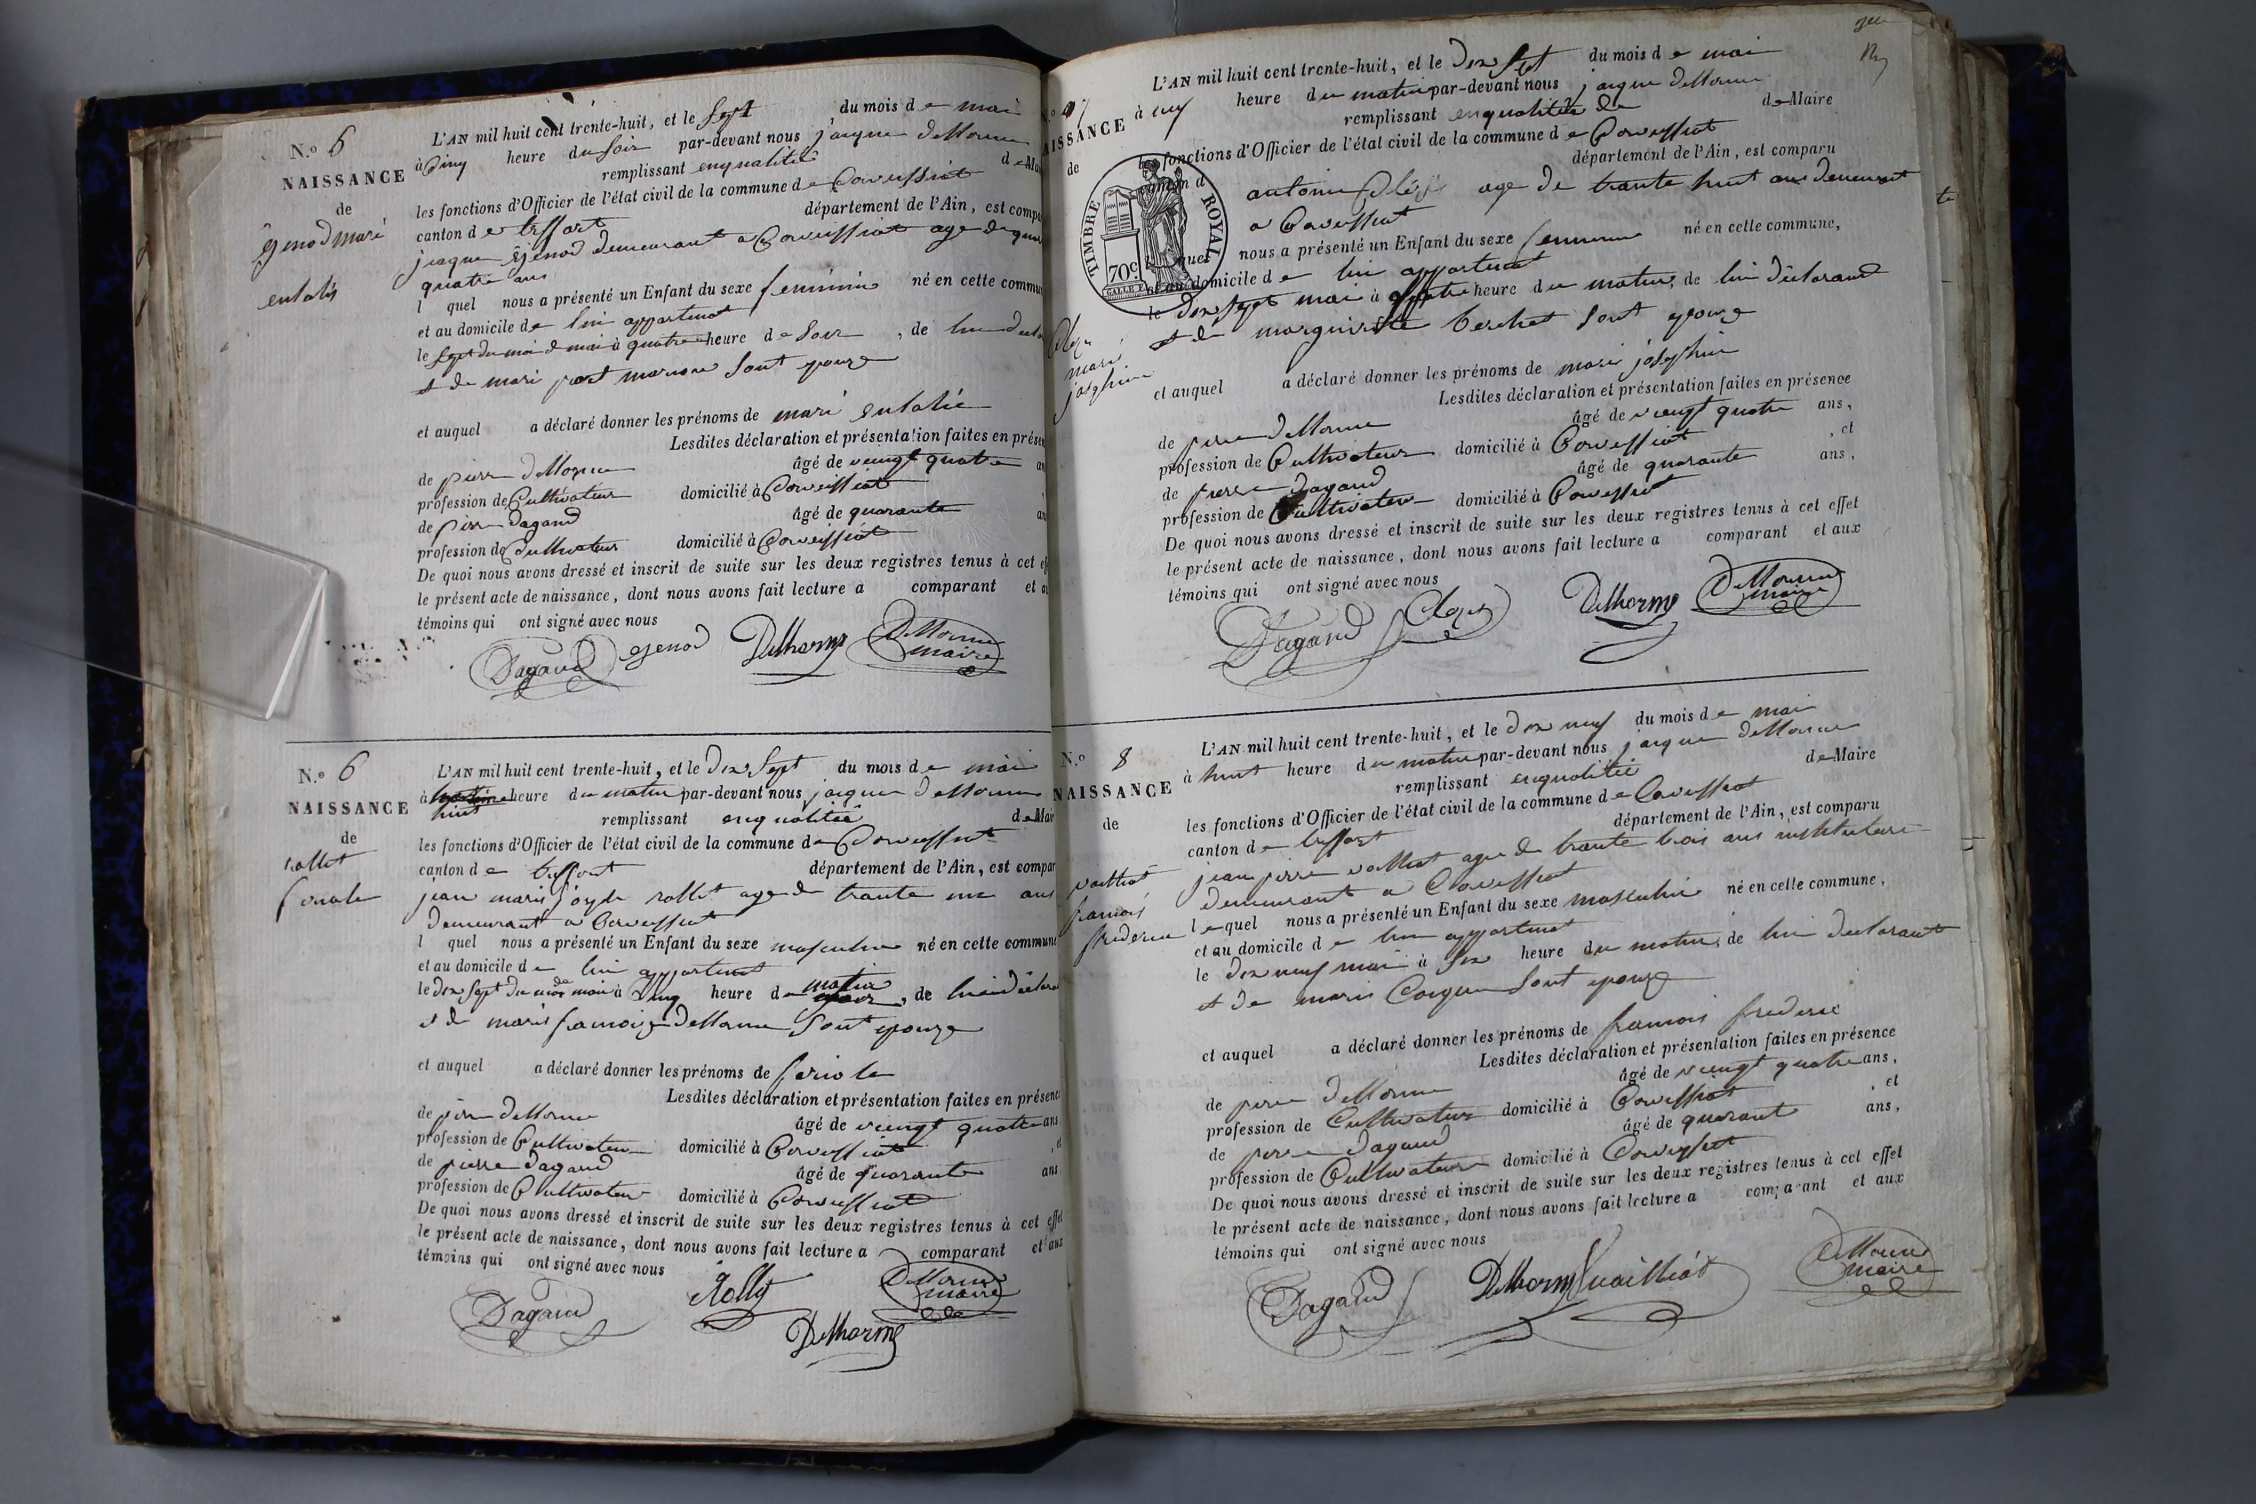 N.o 6
NAISSANCE
de
genod mari
eulali
L'AN mil huit cent trente-huit, et le sept du mois de mai
à cinq heure du soir par-devant nous jacque delorme
remplissant enqualitée de Mai
les fonctions d'Officier de l'état civil de la commune de Corveissiat
canton de treffort département de l'Ain, est compa
jacque genod demeurant a Corveissiat age de quar
quatre ans
l quel nous a présenté un Enfant du sexe feminin né en cette commu
et au domicile de lui appartenat
le sept du moi de mai à quatre heure de soir, de lui decla
et de mari sont epouze
et auquel a déclaré donner les prénoms de mari eulalie
Lesdites déclaration et présentation faites en présen
de pierre delorme âgé de veingt quatre an
profession de Cultivateur domicilié à Corveissiat
de pierre dagand âgé de quarante an
profession de Cultivateur domicilié à Corveissiat
De quoi nous avons dressé et inscrit de suite sur les deux registres tenus à cet eff
le présent acte de naissance, dont nous avons fait lecture a comparant et au
témoins qui ont signé avec nous
Dagand genod Delhorme Delorme
maire
N.o 6
NAISSANCE
de
rollet
L'AN mil huit cent trente-huit, et le dix sept du mois de mai
à heure du matin par-devant nous jacque delorme
huit
remplissant enqualitée de Mai
les fonctions d'Officier de l'état civil de la commune de Corveissiat
canton de treffort département de l'Ain, est compar
jean marie rollet age de trante un ans
demeurant a Corveissiat
l quel nous a présenté un Enfant du sexe masculin né en cette commune
et au domicile de lui appartenat
le dix sept du moi de mai à cinq heure de matin, de lui déclara
et de marie francoize delorme sont epouze
et auquel a déclaré donner les prénoms de
Lesdites déclaration et présentation faites en présence
de pierre delorme âgé de veingt quatre ans
profession de Cultivateur domicilié à Corveissiat, et
de pierre dagand âgé de quarante ans
profession de Cultivateur domicilié à Corveissiat
De quoi nous avons dressé et inscrit de suite sur les deux registres tenus à cet effet
le présent acte de naissance, dont nous avons fait lecture a comparant et aux
témoins qui ont signé avec nous
Dagand Rollet Delorme
maire
Delhorme
N.o 7
NAISSANCE
de
mari
josephine
TIMBRE ROYAL
70c.
L'AN mil huit cent trente-huit, et le dix sept du mois de mai
à neuf heure du matin par-devant nous jacque delorme
remplissant enqualitée de de Maire
les fonctions d'Officier de l'état civil de la commune de Corveissiat
canton d département de l'Ain, est comparu
antoine age de trante huit ans demeurant
a Corveissiat
l quel nous a présenté un Enfant du sexe feminin né en cette commune,
et au domicile de lui appartenat
le dix sept mai à quatre heure du matin, de lui déclarand
et de marguirite berchet sont epouze
et auquel a déclaré donner les prénoms de mari josephine
Lesdites déclaration et présentation faites en présence
de pierre delorme âgé de veingt quatre ans,
profession de Cultivateur domicilié à Corveissiat, et
de pierre dagand âgé de quarante ans,
profession de Cultivateur domicilié à Corveissiat
De quoi nous avons dressé et inscrit de suite sur les deux registres tenus à cet effet
le présent acte de naissance, dont nous avons fait lecture a comparant et aux
témoins qui ont signé avec nous
Dagand Delhorme Delorme
maire
N.o 8
NAISSANCE
de
vailliat
francois
frederic
L'AN mil huit cent trente-huit, et le dix neuf du mois de mai
à huit heure du matin par-devant nous jacque delorme
remplissant enqualitée de Maire
les fonctions d'Officier de l'état civil de la commune de Corveissiat
canton de treffort département de l'Ain, est comparu
jean pierre vailliat age de trante trois ans instituteur
demeurant a Corveissiat
le quel nous a présenté un Enfant du sexe masculin né en cette commune,
et au domicile de lui appartenat
le dix neuf mai à six heure du matin, de lui declarant
et de marie sont epouze
et auquel a déclaré donner les prénoms de francois frederic
Lesdites déclaration et présentation faites en présence
de pierre delorme âgé de veingt quatre ans,
profession de Cultivateur domicilié à Corveissiat, et
de pierre dagand âgé de quarant ans,
profession de Cultivateur domicilié à Corveissiat
De quoi nous avons dressé et inscrit de suite sur les deux registres tenus à cet effet
le présent acte de naissance, dont nous avons fait lecture a comparant et aux
témoins qui ont signé avec nous
Dagand Delhorme vailliat Delorme
maire